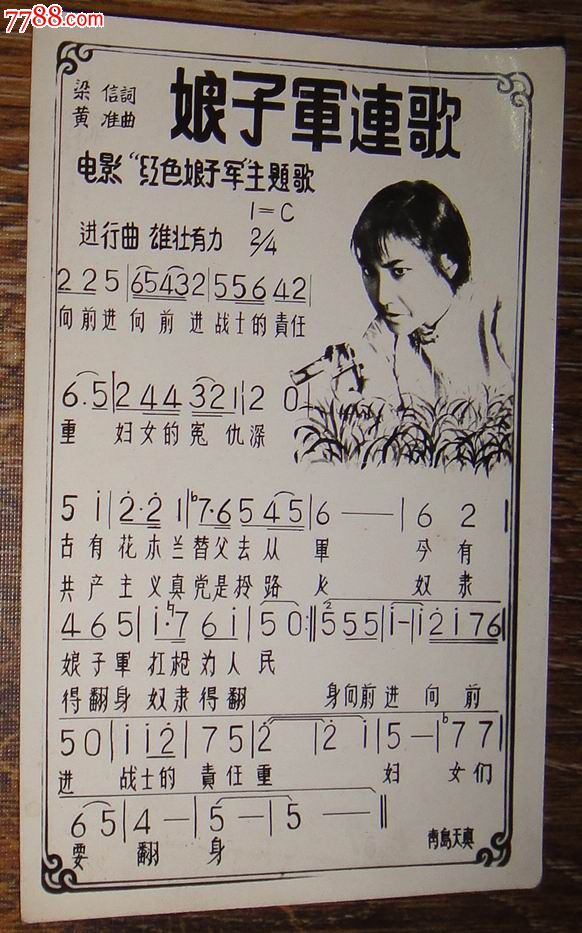 7788.com
中国收藏热线
梁 信詞
黄 准曲
娘子軍連歌
电影“红色娘子军”主題歌
1=C
进行曲 雄壮有力 2/4
2 2 5 | 6 5 4 3 2 | 5 5 6 4 2 |
向前进 向前 进战士的責任
6. 5 | 2 4 4 3 2 1 | 2 0 |
重 妇女的冤仇深
5 i | 2· 2 1 | ♭7· 6 5 4 5 | 6 — — | 6 2 |
古有花木兰替父去从 軍 今有
共产主义真党是拎路 人 奴隶
4 6 5 | i· ♮7 6 i | 5 0 :|| 5 5 5 5 | i — | i 2 i 7 6 |
娘子軍 扛枪为人民
得翻身 奴隶得翻 身向前进 向前
5 0 | i i 2 | 7 5 | 2 | 2 i | 5 — | ♭7 7 |
进 战士的責任重 妇女们
6 5 | 4 — | 5 — | 5 — ||
要 翻 身
青島天真